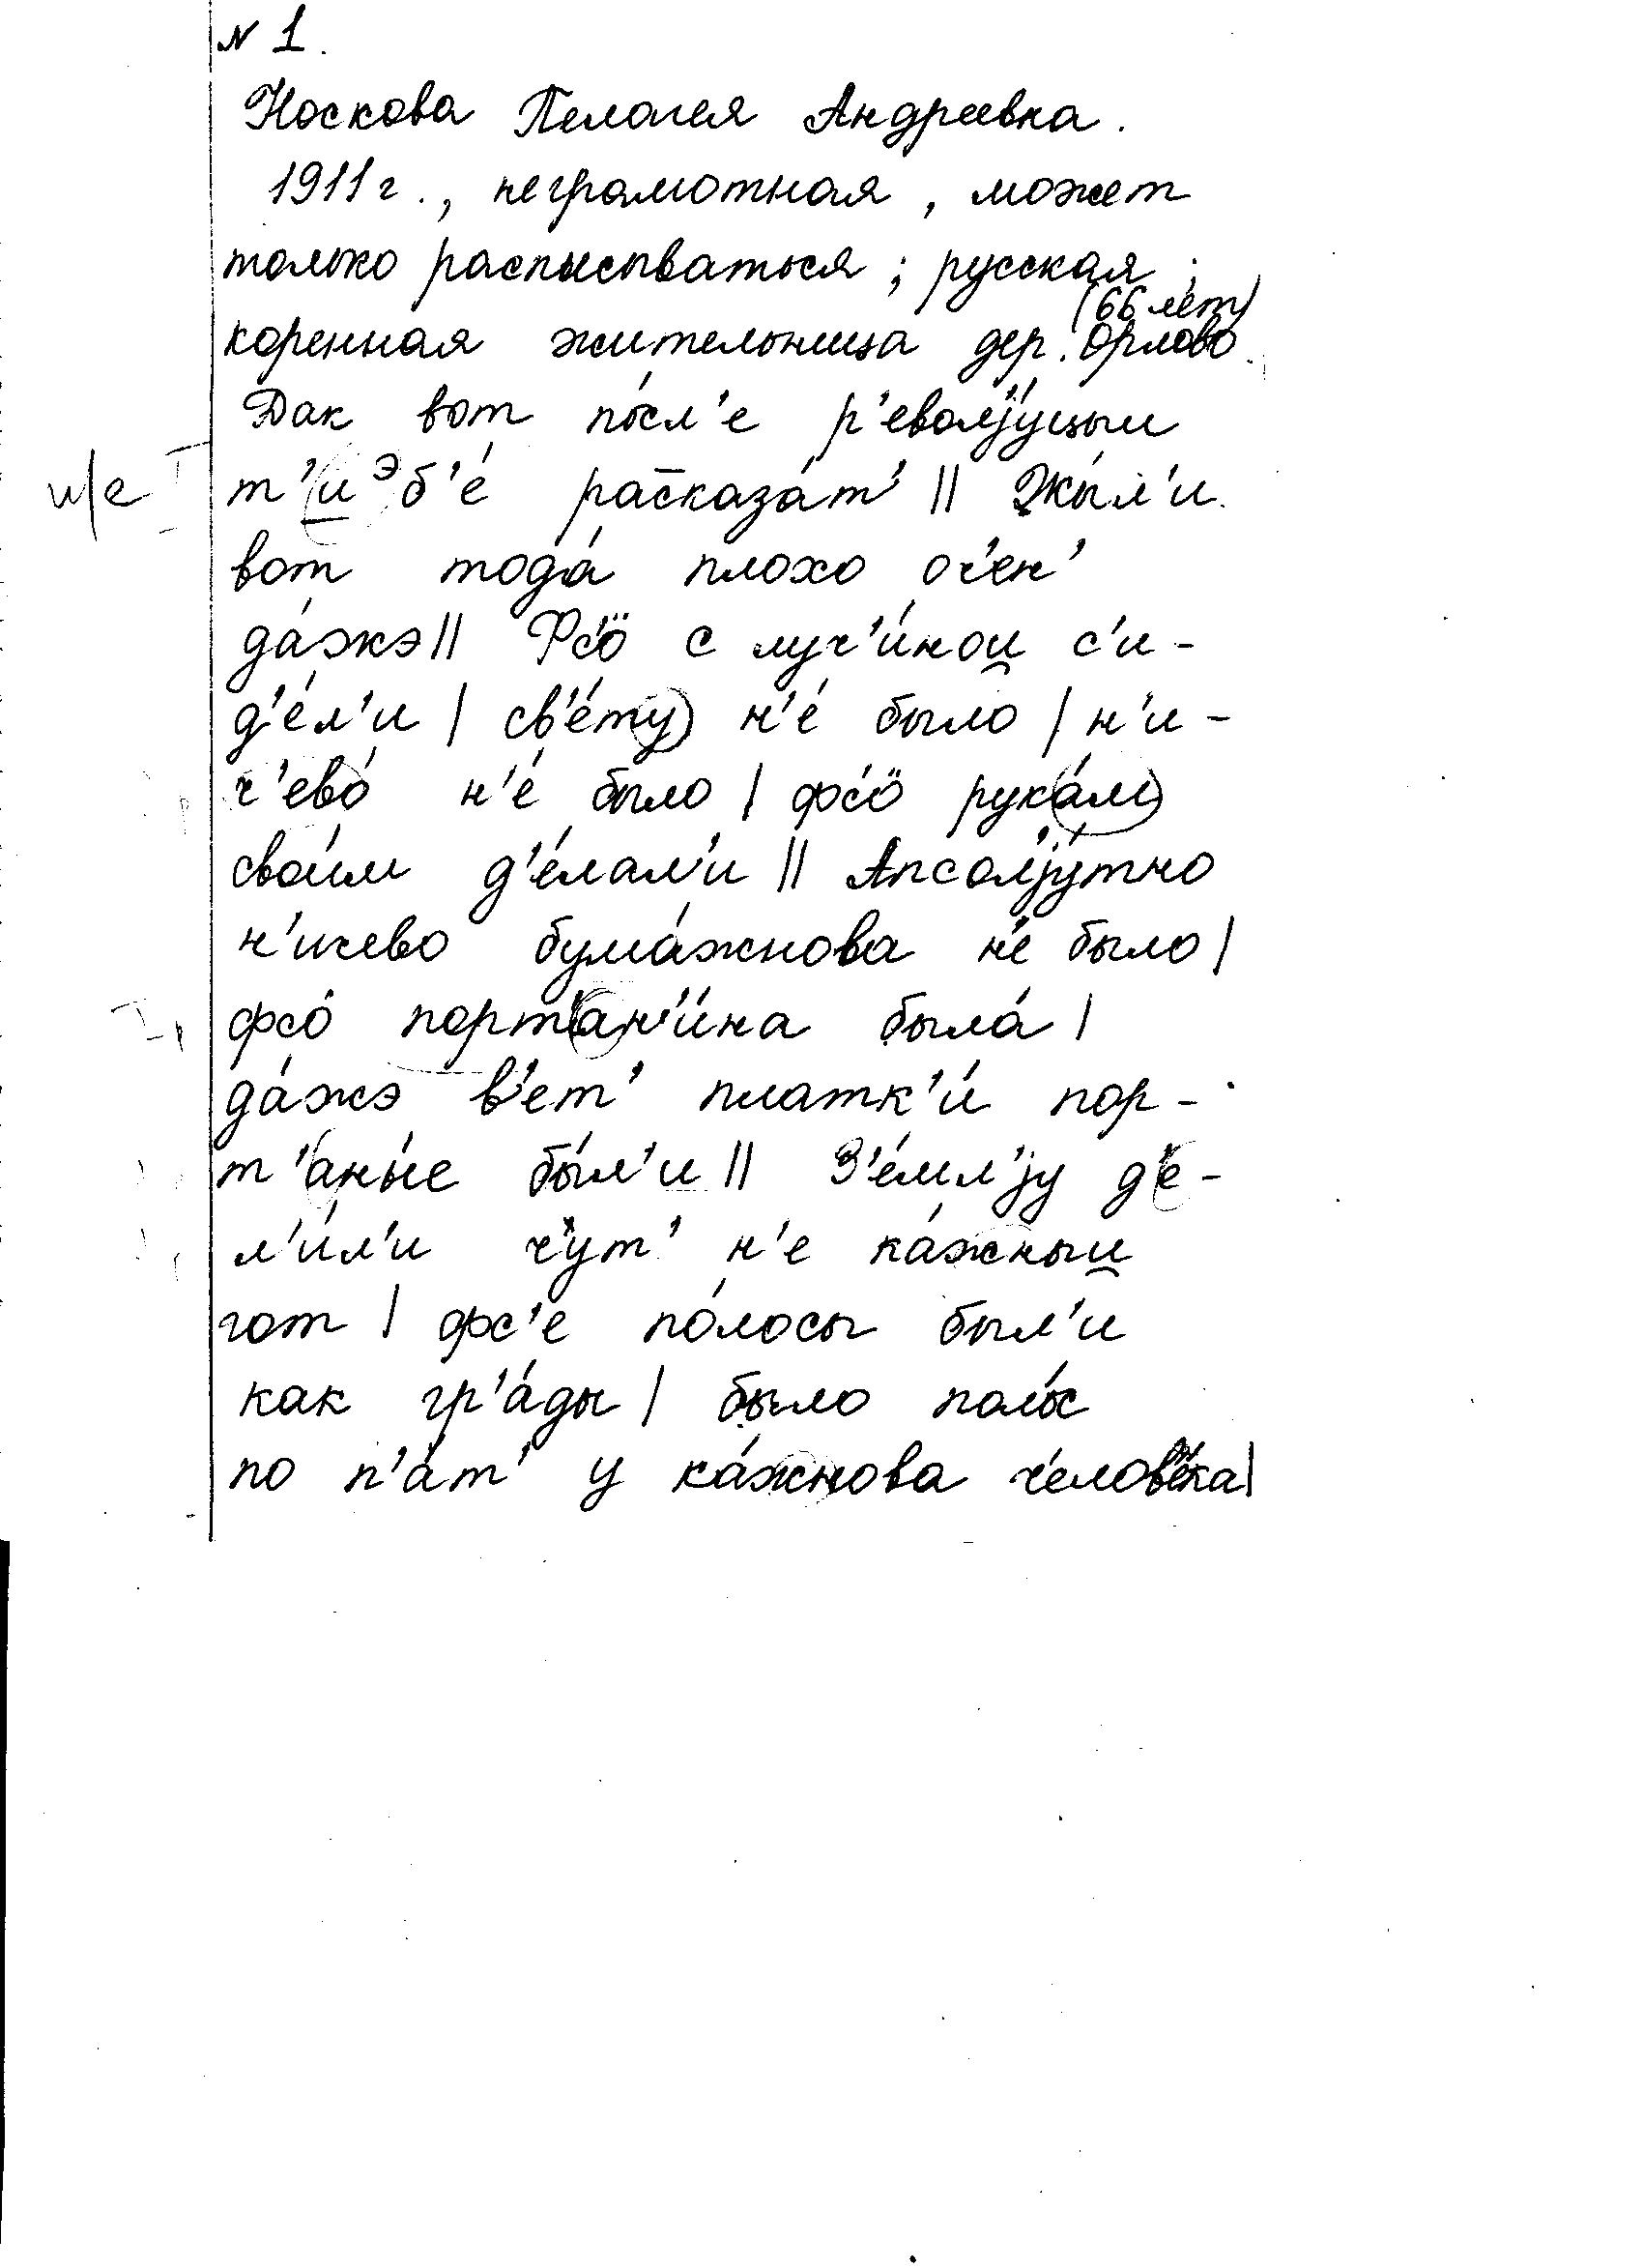 N 1.
Носкова Пелагея Андреевна.
1911 г., неграмотная, может
только расписываться; русская;
(66 лет)
коренная жительница дер. Орлово.
Дак вот по́сл'е р'евол'jу́цыи
и/е т'иэб'е́ расказа́т' || Жы́л'и
вот тода́ плохо оч'ен'
да́жэ || Фс'ӧ с луч'и́нои̯ с'и-
д'е́л'и | св'е́ту н'е́ было | н'и-
ч'ево́ н'е́ было | фс'ӧ рука́м
свои́м д'е́лал'и || Апсол'jу́тно
н'ичево бума́жнова н'е́ было |
фс'о́ порт'ан'и́на была́ |
да́жэ в'ет' платк'и́ пор-
т'аны́е бы́л'и || З'е́мл'jу д'е-
л'и́л'и ч'ут' н'е ка́жныи̯
гот | фс'е по́лосы был'и
как гр'а́ды | было поло́с
по п'а́т' у ка́жнова ч'елов'е́ка |